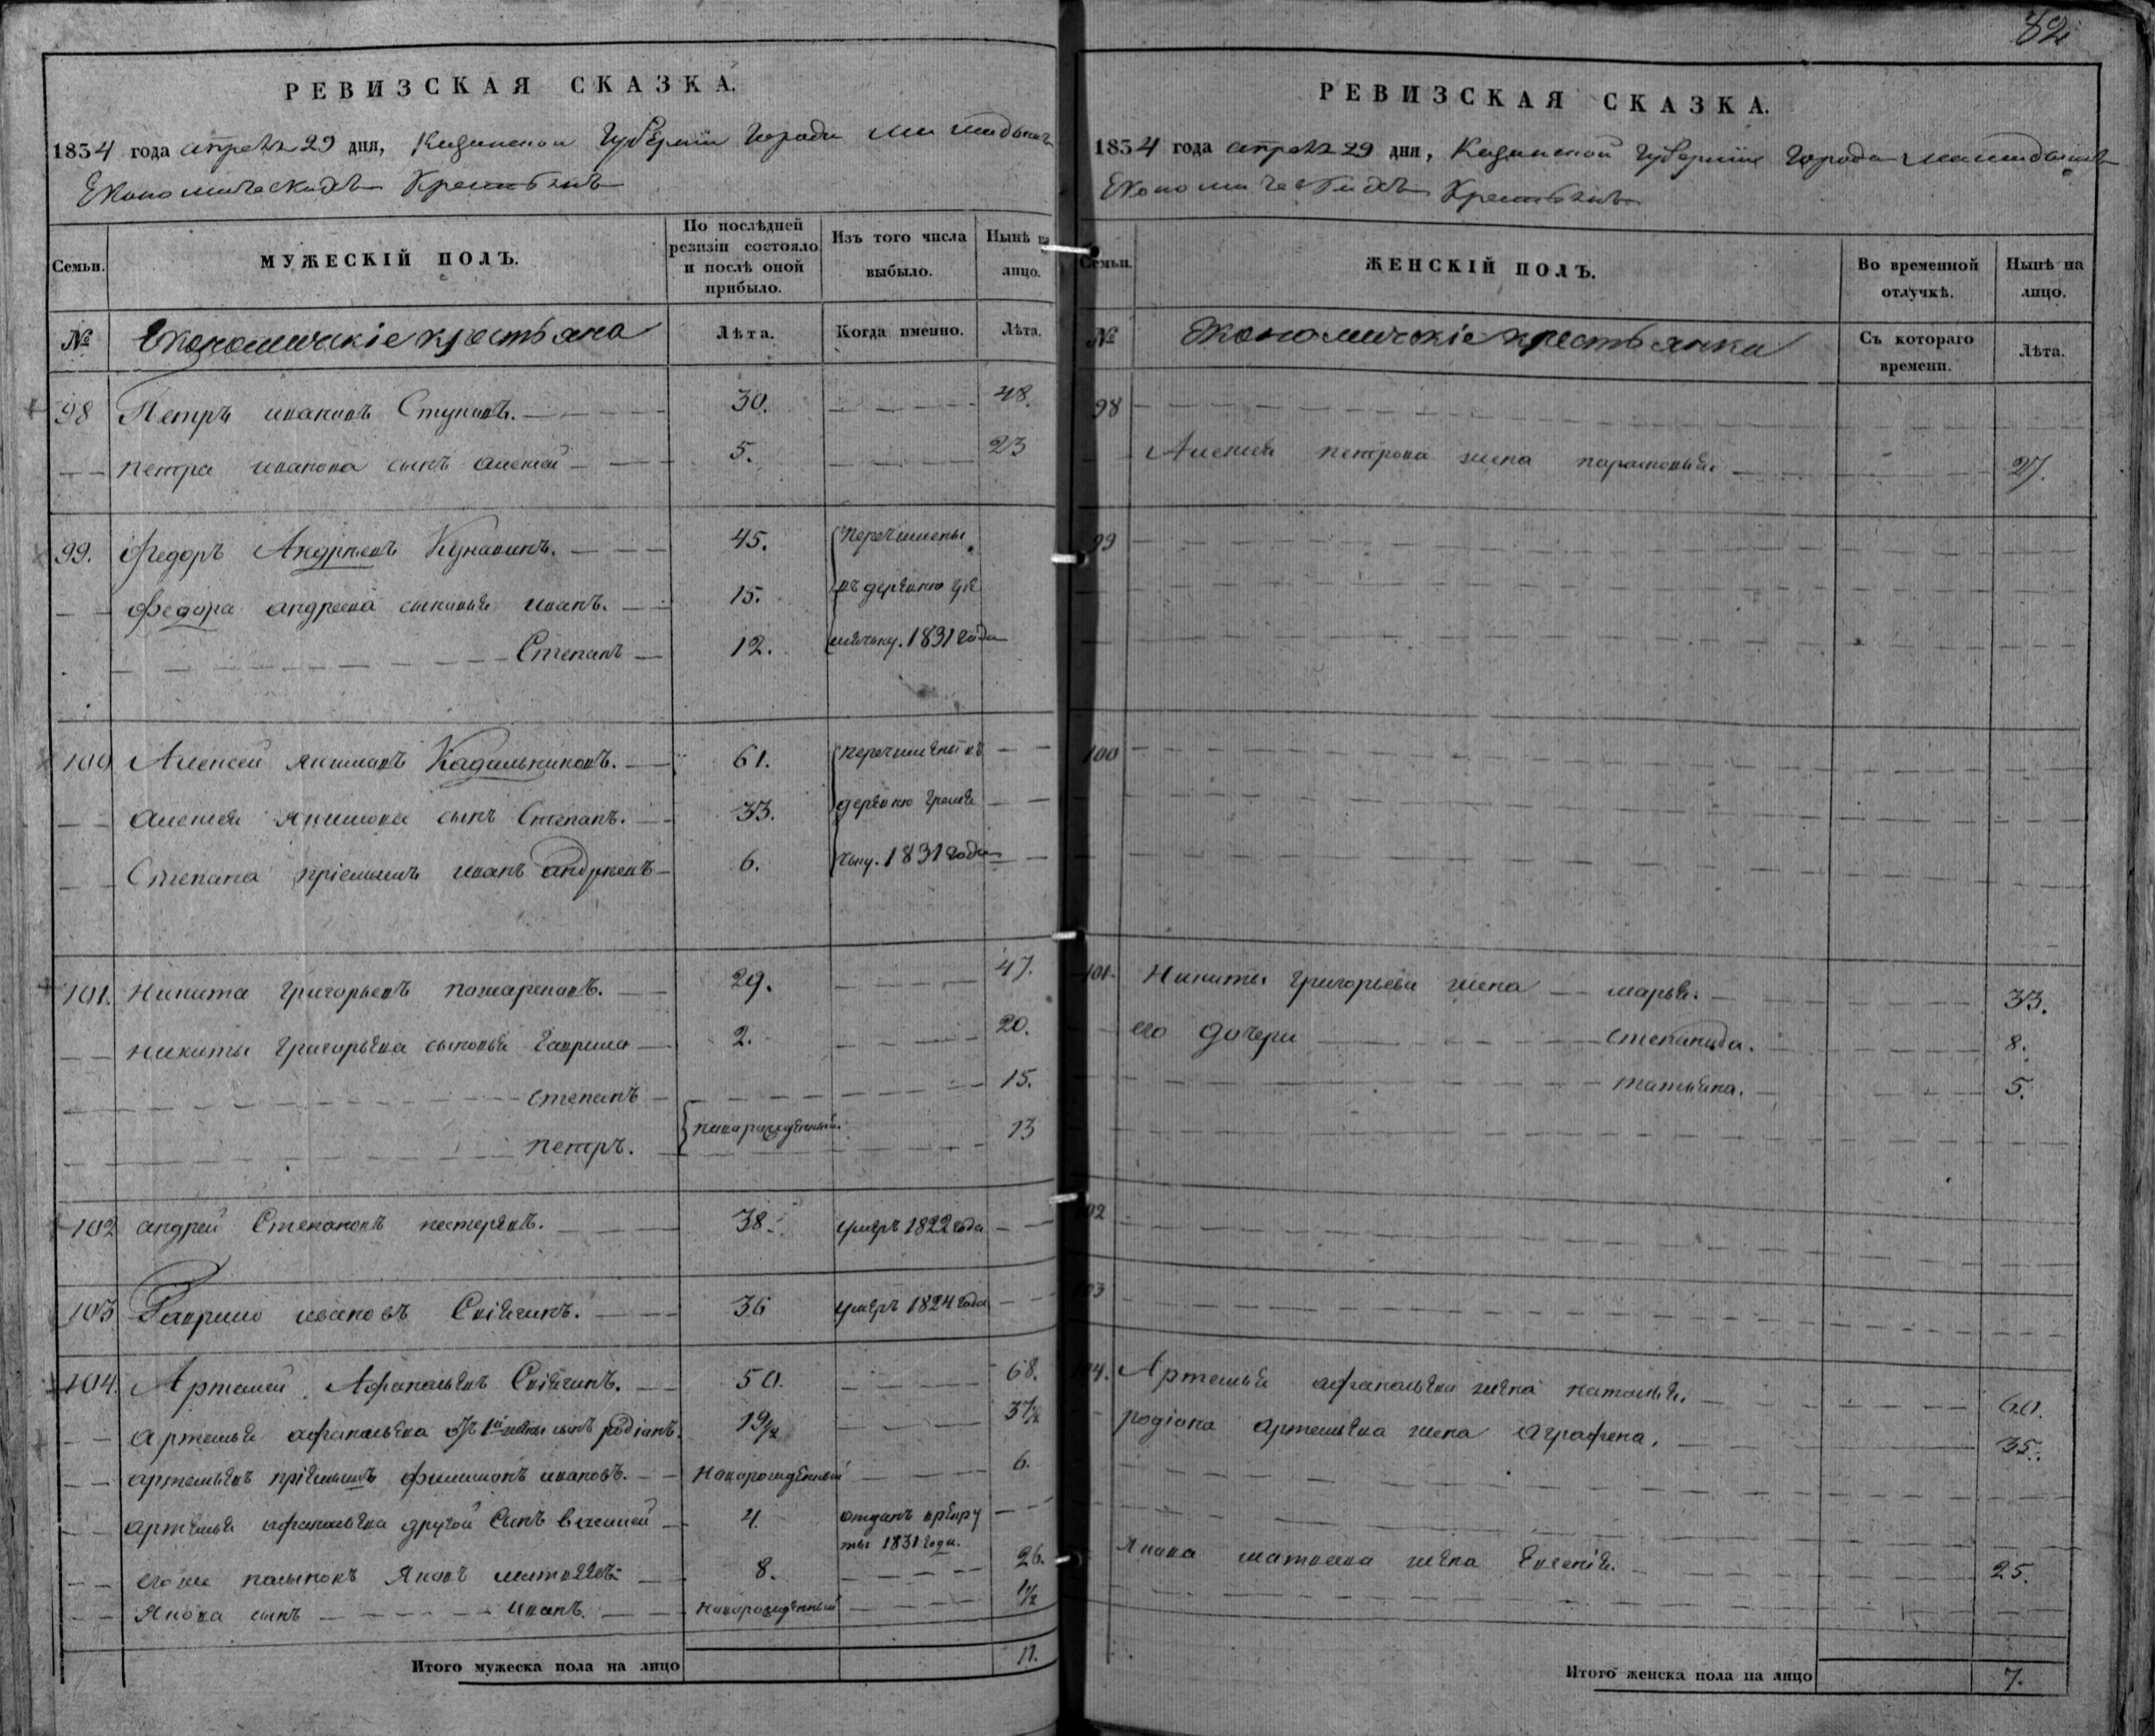 82
РЕВИЗСКАЯ СКАЗКА.
1834 года апреля 29 дня, Казанской Губернiи Города Мамадыша
Економическихъ Крестьянъ
Семьи.
МУЖЕСКІЙ ПОЛЪ.
По послѣдней ревизіи состояло и послѣ оной прибыло.
Изъ того числа выбыло.
Нынѣ на лицо.
№ Економическiе крестьяна Лѣта. Когда именно. Лѣта.
98 Петръ ивановъ Ступинъ. 30. 48.
Петра иванова сынъ алексей 5. 23
99. Федоръ Андреевъ Кунавинъ. 45. перечислены
Федора андреева сыновья иванъ. 15. въ деревню гре
Степанъ 12. мячьку. 1831 года
100 Алексей якимовъ Кадильниковъ. 61. перечислены въ
алексея якимова сынъ Степанъ. 33. деревню гремя
Степана прiемышъ иванъ андреевъ 6. чьку. 1831 года
101. Никита григорьевъ пожареновъ. 29. 47.
никиты григорьева сыновья гаврило 2. 20.
степанъ 15.
петръ. новорожденный. 13
102 андрей Степановъ нестеревъ. 38. умеръ 1822 года
103 Гаврило ивановъ Свіягинъ. 36 умеръ 1824 года
104. Артемей Афанасьевъ Свіягинъ. 50. 68.
артемья афанасьева отъ 1й жены сынъ родiонъ. 19½ 37½
артемьевъ прiемышъ филимонъ ивановъ. новорожденный 6.
артемья афанасьева другой сынъ василей 4. отданъ врекру
ты 1831 года.
его же пасынокъ Яковъ матвеевъ 8. 26.
Якова сынъ иванъ. новорожденный 1½
Итого мужеска пола на лицо 11.
РЕВИЗСКАЯ СКАЗКА.
1834 года апреля 29 дня, Казанской Губернiи Города Мамадыша
Економическихъ Крестьянъ
Семьи.
ЖЕНСКІЙ ПОЛЪ.
Во временной отлучкѣ.
Нынѣ на лицо.
№ Економическiе крестьянки Съ котораго времени. Лѣта.
98
Алексея петрова жена парасковья. 27.
99
100
101. Никиты григорьева жена марья. 33.
его дочери степанида. 8.
татьяна. 5.
102
103
104. Артемья афанасьева жена наталья. 60.
родiона артемьева жена аграфена. 35.
Якова матвеева жена Евгенiя. 25.
Итого женска пола на лицо 7.